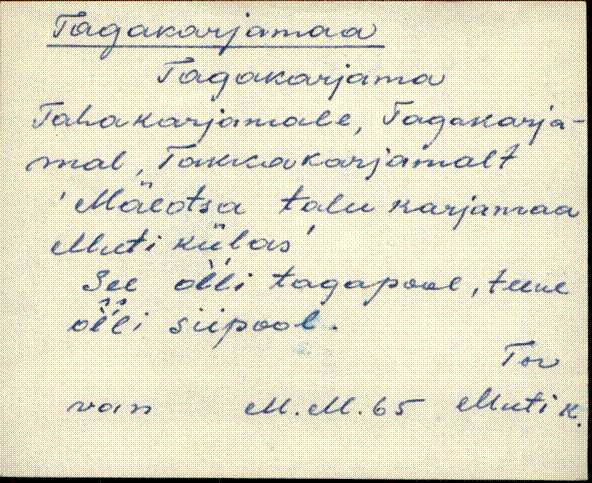 Tagakarjamaa
Tagakarjama
Tahakarjamale, Tagakarja-
mal, Takkakarjamalt
'Mäeotsa talu karjamaa
Muti külas'
See olli tagapool, teene
olli siipool.
Tor
van M.M. 65 Muti k.